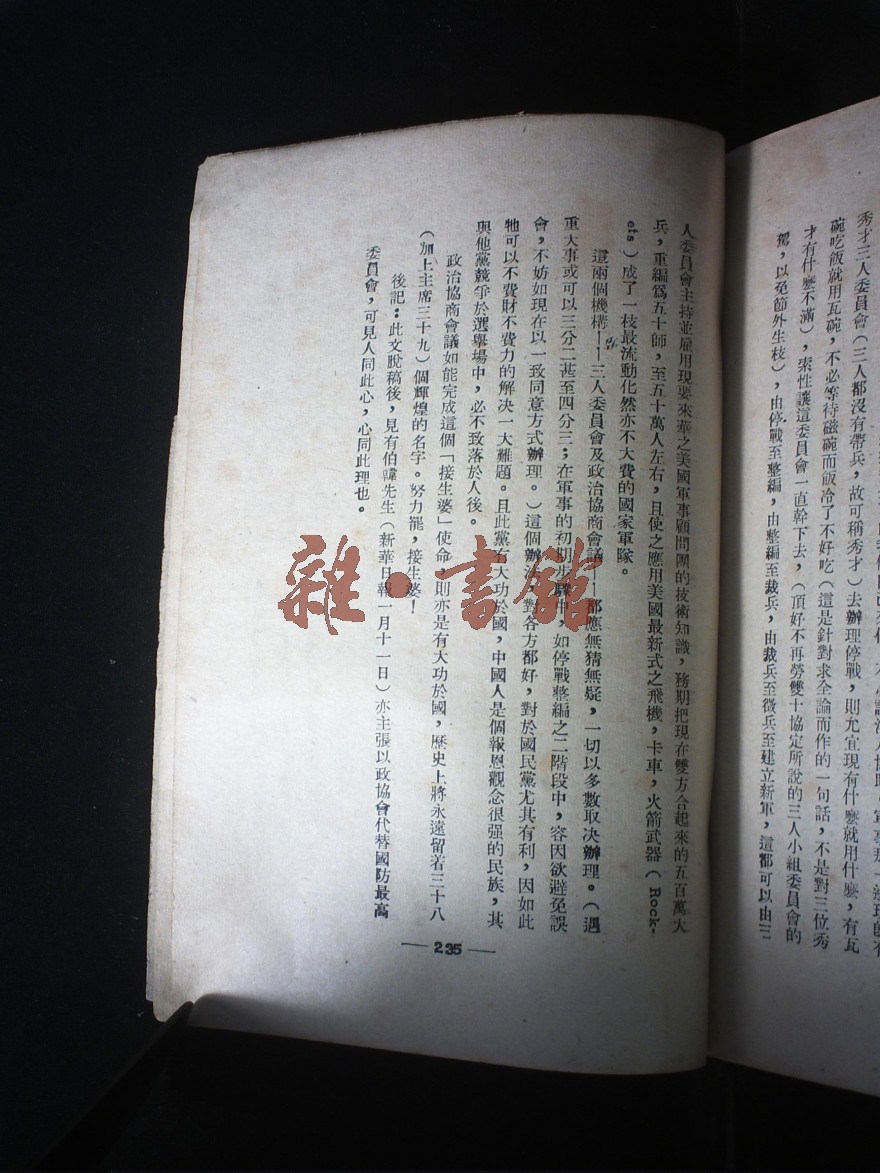 秀才三人委員會（三人都沒有帶兵，故可稱秀才）去辦理停戰，則尤宜現有什麼就用什麼，有瓦
碗吃飯就用瓦碗，不必等待磁碗而飯冷了不好吃（這是針對求全論而作的一句話，不是對三位秀
才有什麼不滿），索性讓這委員會一直幹下去，（頂好不再勞雙十協定所說的三人小組委員會的
駕，以免節外生枝），由停戰至整編，由整編至裁兵，由裁兵至徵兵至建立新軍，這都可以由三
人委員會主持並雇用現要來華之美國軍事顧問團的技術知識，務期把現在雙方合起來的五百萬大
兵，重編爲五十師，至五十萬人左右，且使之應用美國最新式之飛機，卡車，火箭武器（Rock-
ets）成了一枝最流動化然亦不大費的國家軍隊。
這兩個機構——三人委員會及政治協商會議——都應無猜無疑，一切以多數取决辦理。（遇
重大事或可以三分二甚至四分三；在軍事的初期步驟中，如停戰整編之二階段中，容因欲避免誤
會，不妨如現在以一致同意方式辦理。）這個辦法，對各方都好，對於國民黨尤其有利，因如此
牠可以不費財不費力的解决一大難題。且此黨有大功於國，中國人是個報恩觀念很强的民族，其
與他黨競爭於選舉場中，必不致落於人後。
政治協商會議如能完成這個「接生婆」使命，則亦是有大功於國，歷史上將永遠留着三十八
（加上主席三十九）個輝煌的名字。努力罷，接生婆！
後記：此文脫稿後，見有伯韓先生（新華日報一月十一日）亦主張以政協會代替國防最高
委員會，可見人同此心，心同此理也。
— 235 —
雜·書館